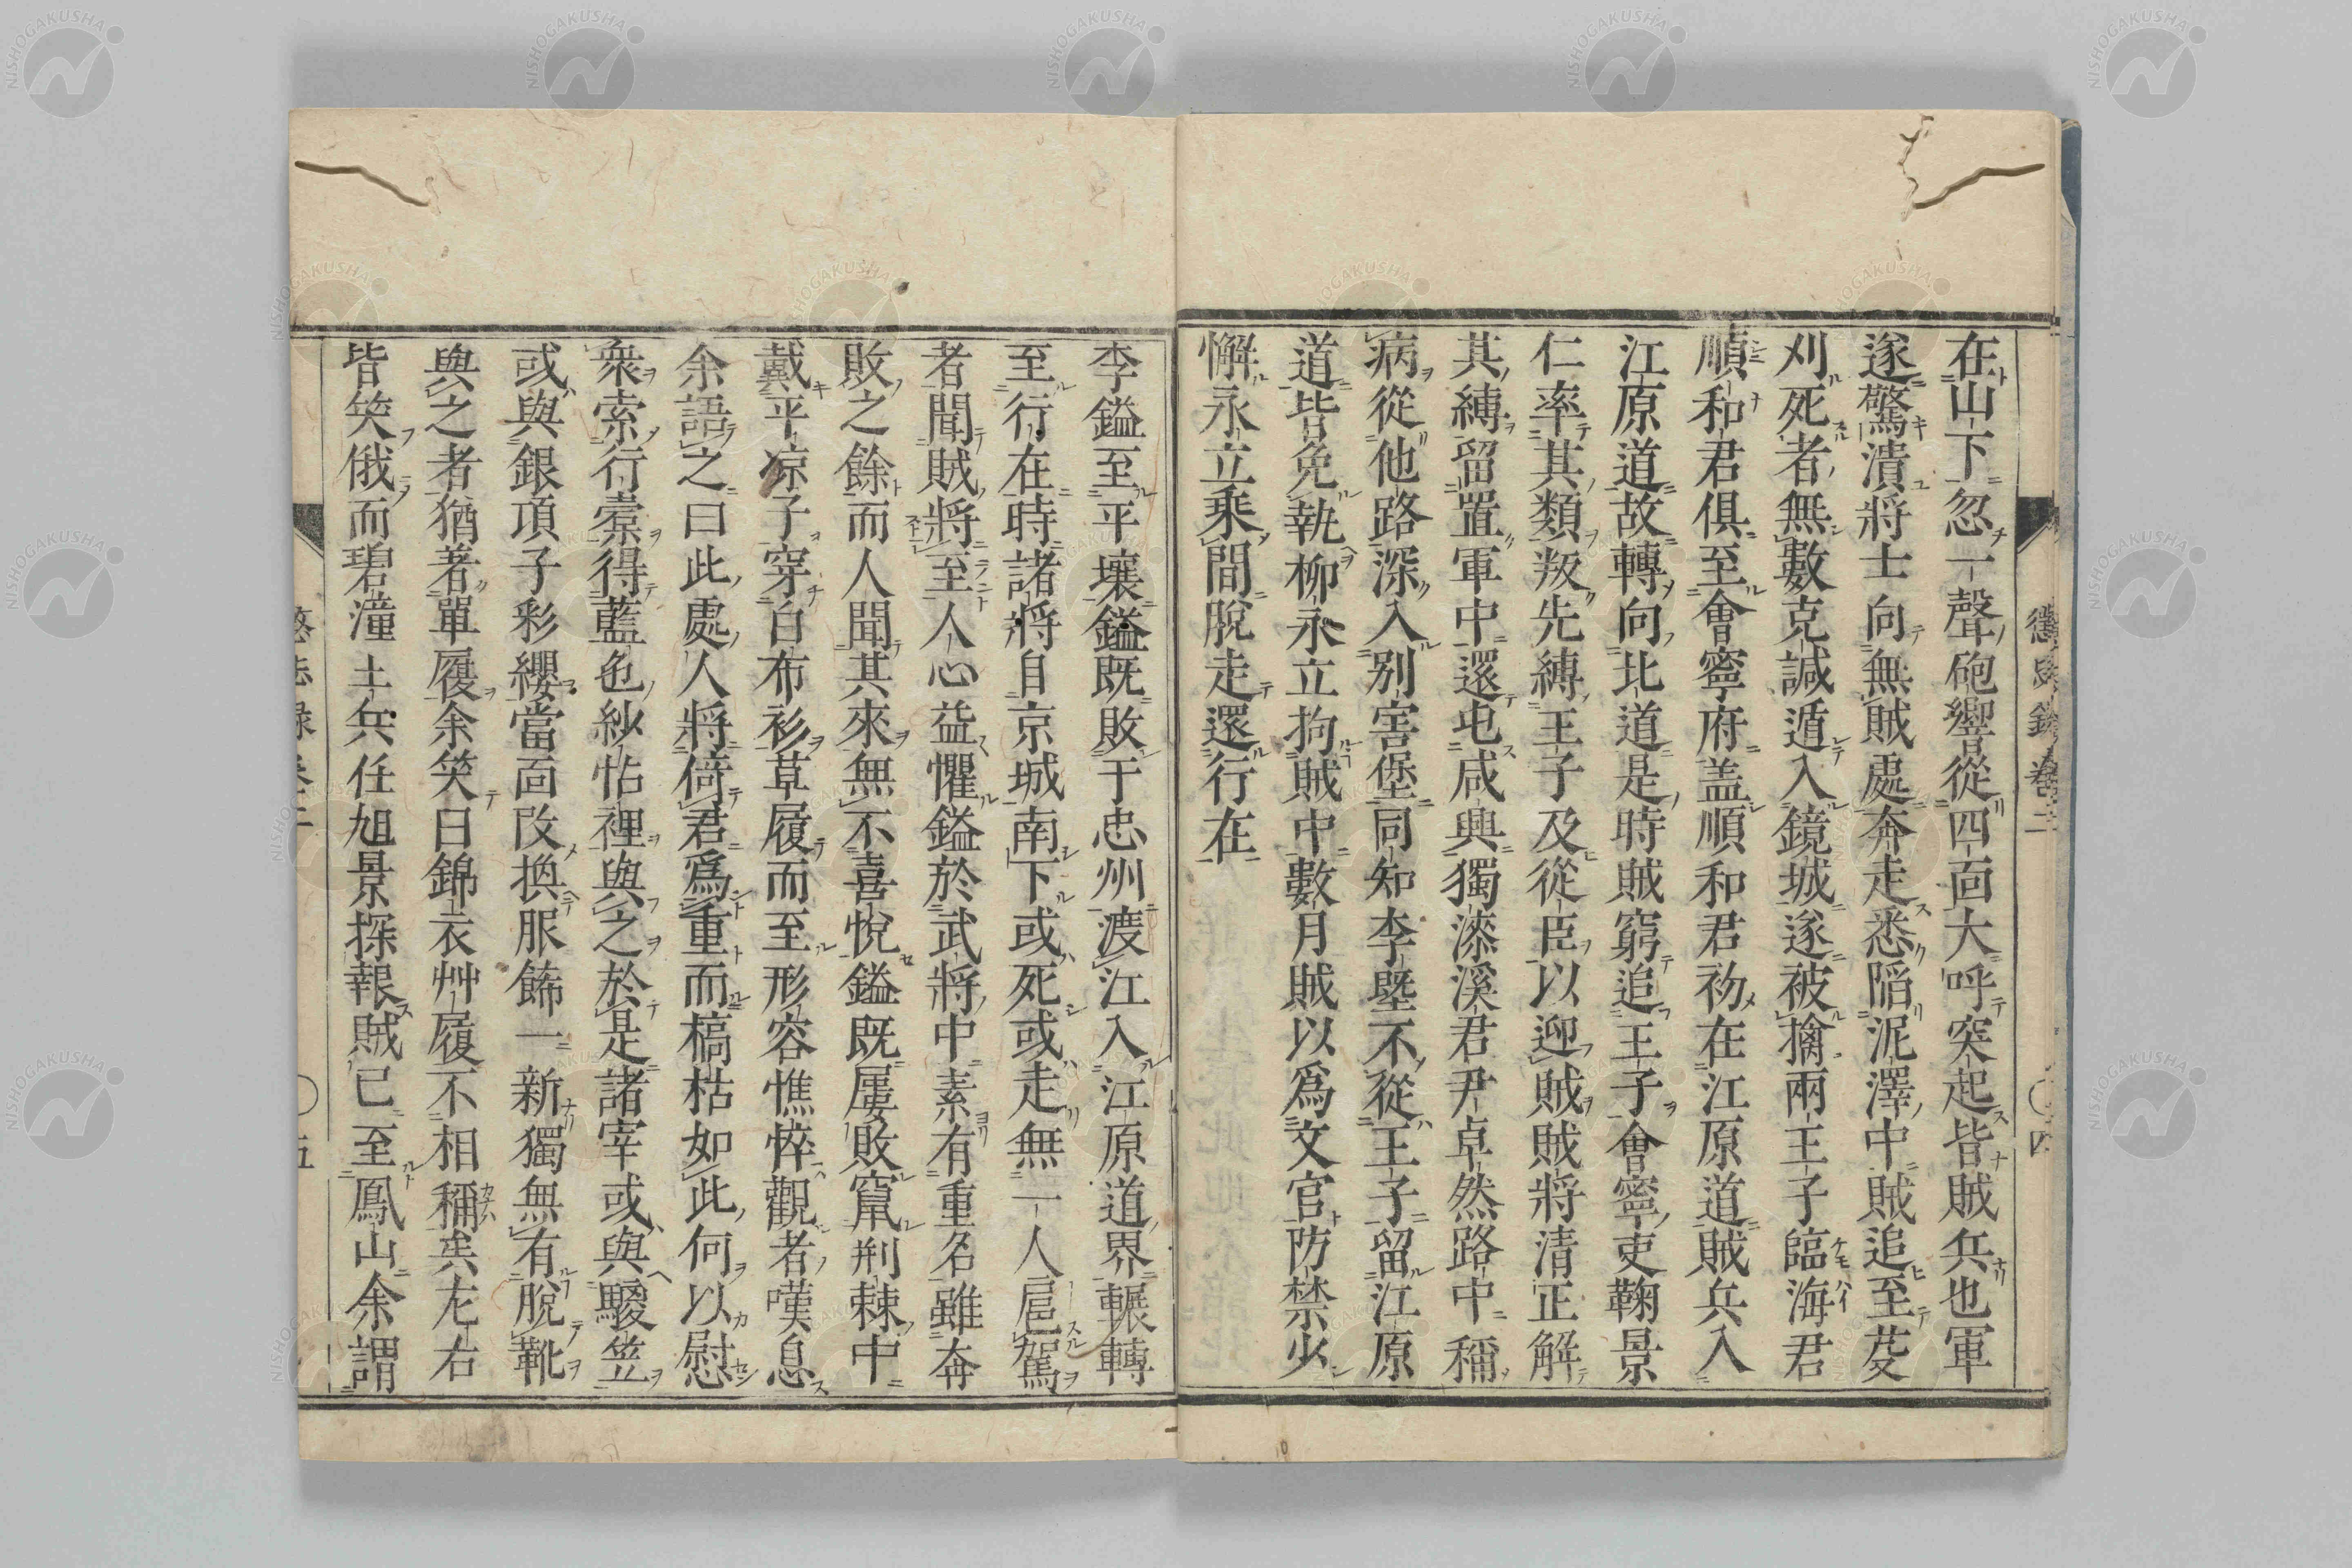 在山下忽一聲砲響從四面大呼突起皆賊兵也軍
遂驚潰將士向無賊處奔走悉陷泥澤中賊追至芟
刈死者無數克諴遁入鏡城遂被擒兩王子臨海君
順和君俱至會寧府盖順和君初在江原道賊兵入
江原道故轉向北道是時賊窮追王子會寧吏鞠景
仁率其類叛先縛王子及從臣以迎賊賊將清正解
其縛留置軍中還屯咸興獨漆溪君尹卓然路中稱
病從他路深入別害堡同知李塈不從王子留江原
道皆免執柳永立拘賊中數月賊以爲文官防禁少
懈永立乘間脫走還行在
李鎰至平壤鎰既敗于忠州渡江入江原道界輾轉
至行在時諸將自京城南下或死或走無一人扈駕
者聞賊將至人心益懼鎰於武將中素有重名雖奔
敗之餘而人聞其來無不喜悅鎰既屢敗竄荆棘中
戴平凉子穿白布衫草履而至形容憔悴觀者嘆息
余語之曰此處人將倚君爲重而槁枯如此何以慰
衆索行槖得藍色紗帖裡與之於是諸宰或與騣笠
或與銀頂子彩纓當面改換服飾一新獨無有脫靴
與之者猶著單履余笑曰錦衣艸履不相稱矣左右
皆笑俄而碧潼土兵任旭景探報賊已至鳳山余謂
懲毖錄卷二
四
五
NISHOGAKUSHA